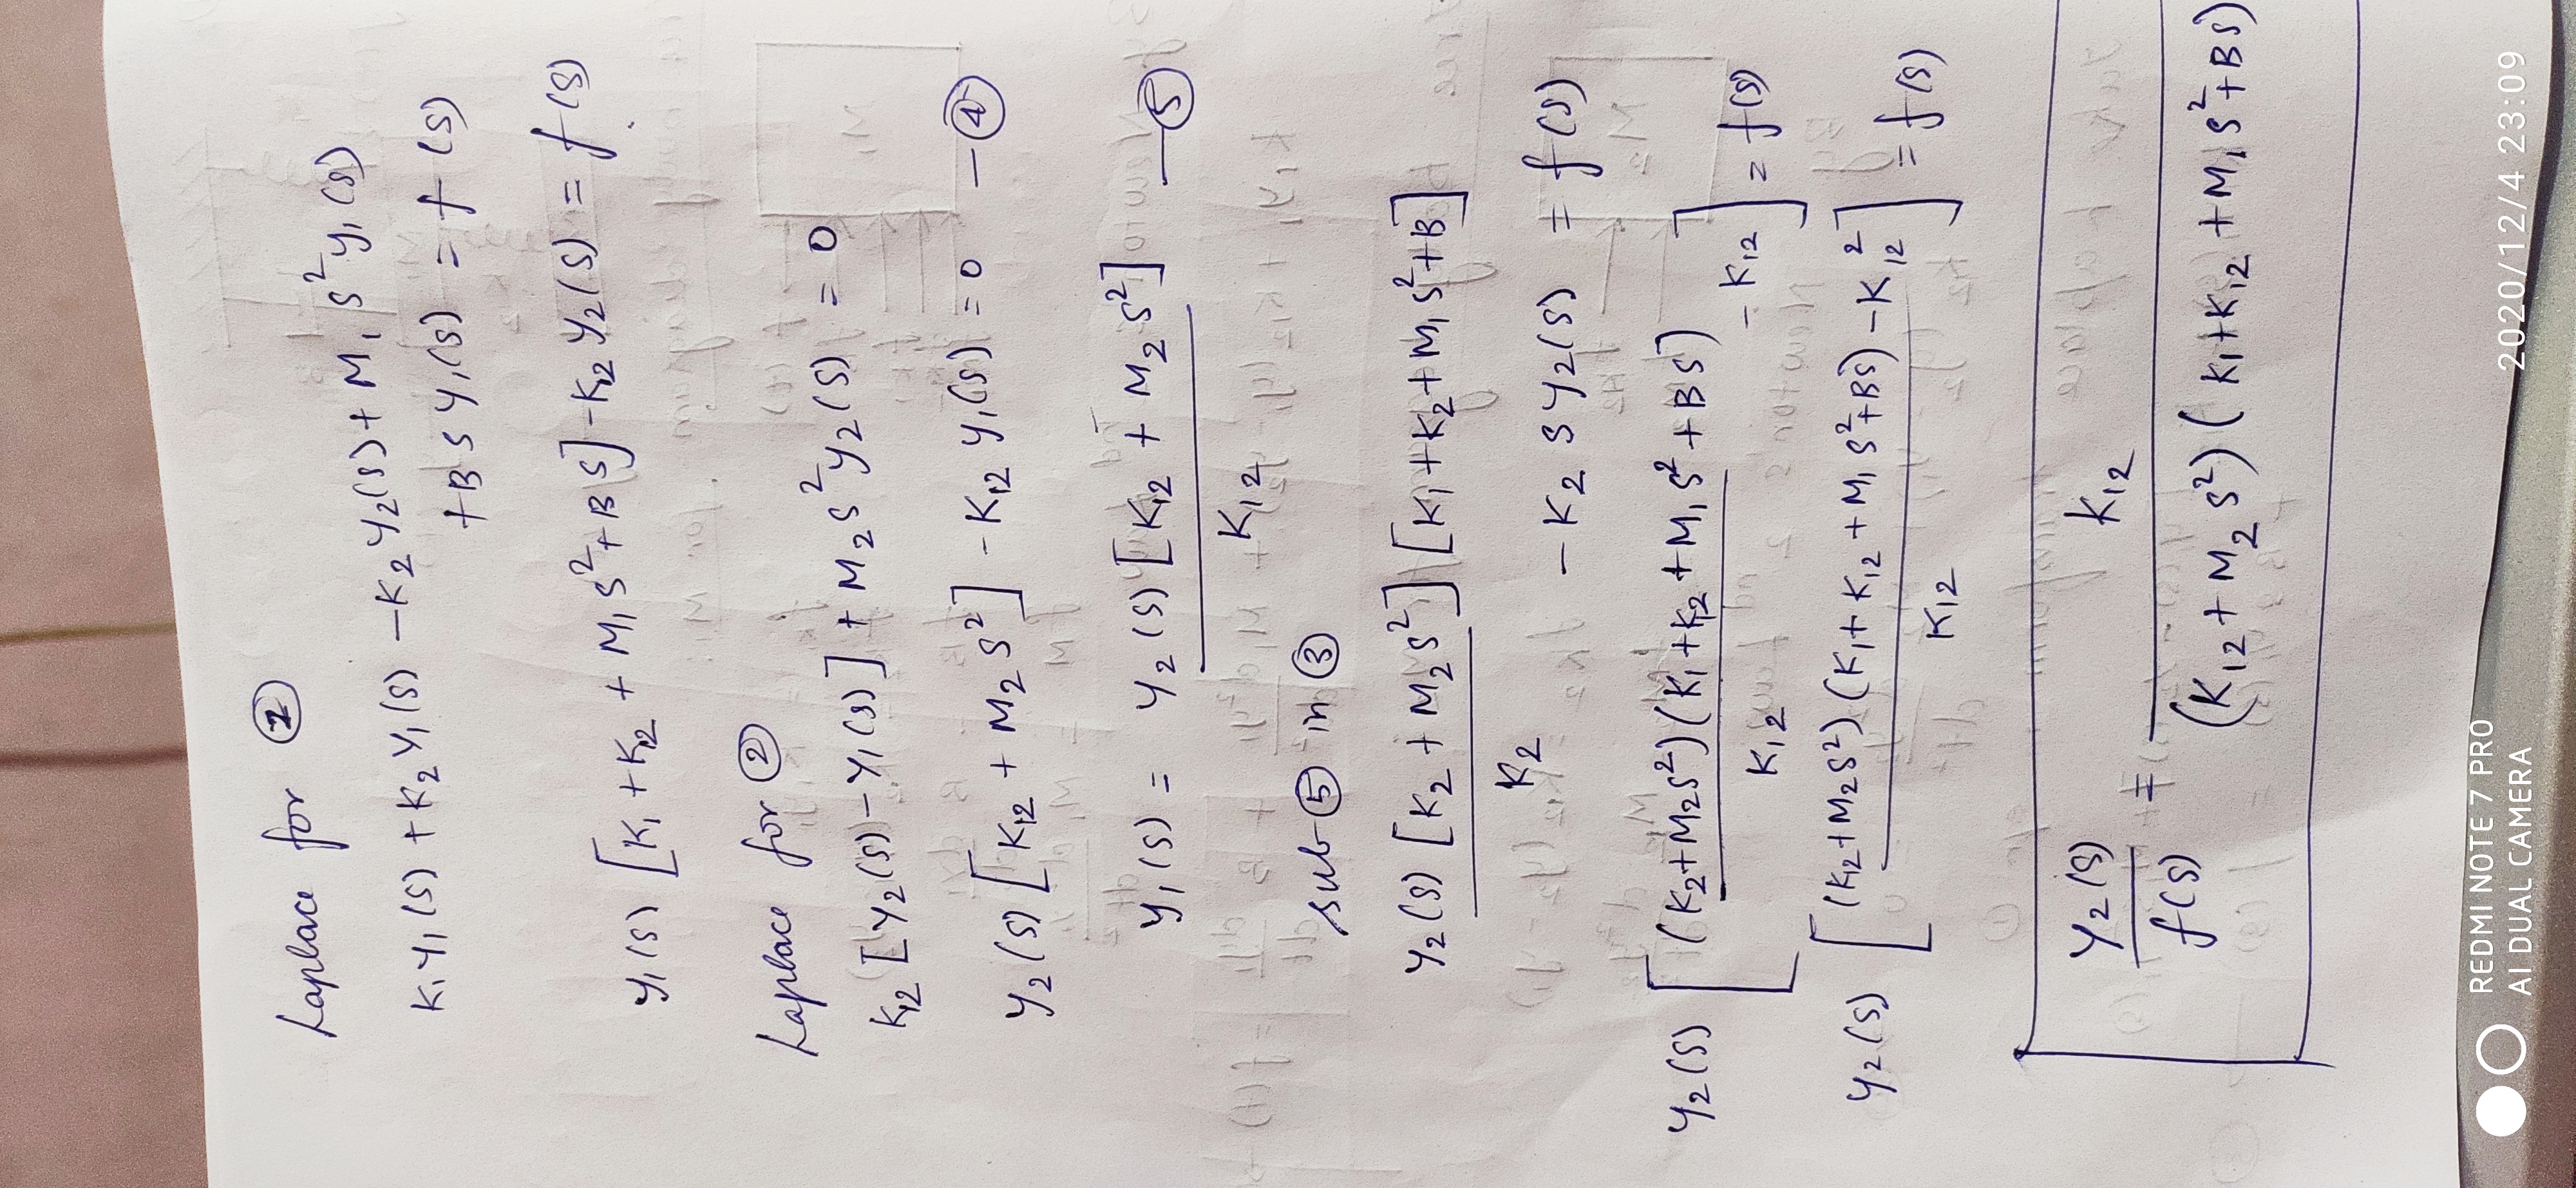 Laplace for ②
K₁Y₁(S) + K₂Y₁(S) - K₂Y₂(S) + M₁S²y₁(S)
+ B S Y₁(S) = f(S)
y₁(S) [K₁ + K₁₂ + M₁S² + BS] - K₁₂ Y₂(S) = f(S)
Laplace for ②
K₁₂ [Y₂(S) - Y₁(S)] + M₂S²y₂(S) = 0
Y₂(S) [K₁₂ + M₂S²] - K₁₂ y₁(S) = 0 — ④
y₁(S) = Y₂(S) [K₁₂ + M₂S²] — ⑤
K₁₂
sub ⑤ in ③
Y₂(S) [K₂ + M₂S²] [K₁ + K₂ + M₁S² + B]
K₂
- K₂ S Y₂(S) = f(S)
Y₂(S) [(K₂ + M₂S²)(K₁ + K₂ + M₁S² + BS)
K₁₂ - K₁₂] = f(S)
Y₂(S) [(K₁₂ + M₂S²)(K₁ + K₁₂ + M₁S² + BS) - K₁₂²
K₁₂ ] = f(S)
Y₂(S) = K₁₂
f(S) (K₁₂ + M₂S²)(K₁ + K₁₂ + M₁S² + BS)
REDMI NOTE 7 PRO
AI DUAL CAMERA
2020/12/4 23:09